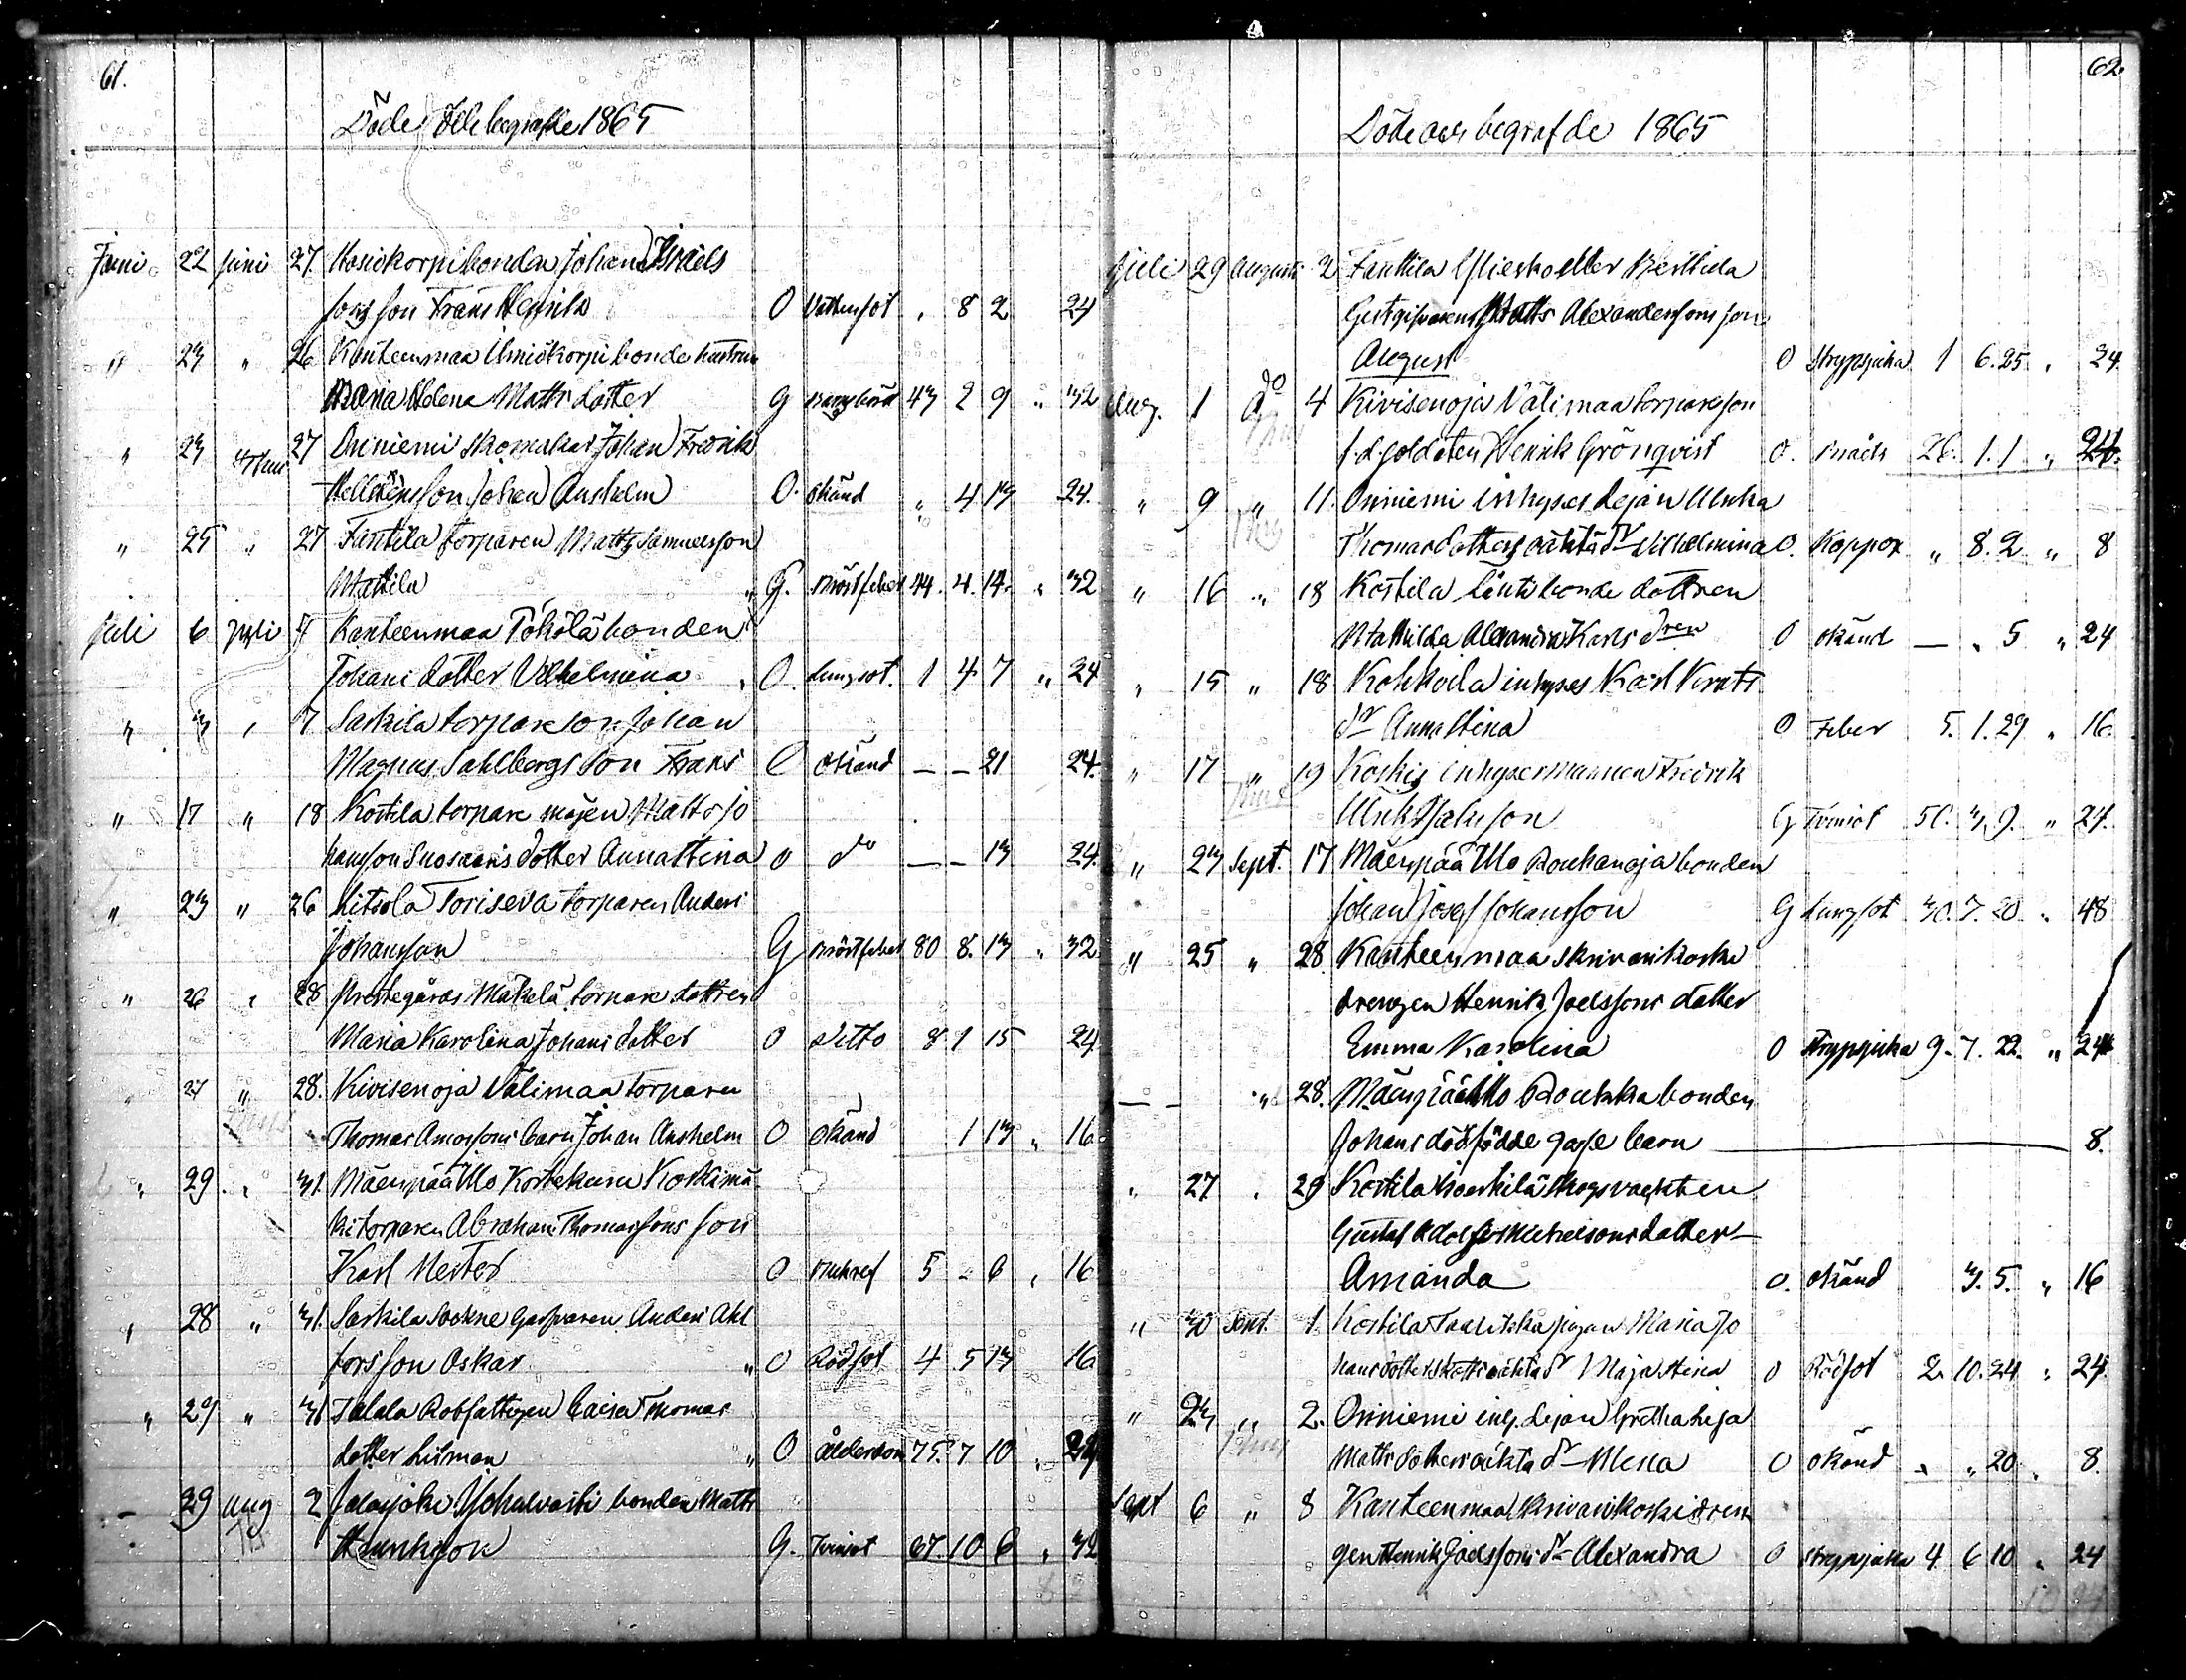 61.
Döde och begrafde 1865
Juni 22 juni 27. bonden Johan Israels
sons son Frans Henrik O Vattensot " 8 2 24
" 23 " 26 Kanteenmaa bonde hustrun
Maria Helena Matts dotter G Barnsbörd 43 2 9 " 32
" 23 27 Oriniemi skomakar Johan Fredrik
son Johan Anshelm O. Okänd " 4 13 24.
" 25 " 27 Fanttila torparen Matts Samuelsson
Mattila " G. Bröstfeber 44. 4. 14. " 32
Juli 6 Juli 7 Kanteenmaa Töhölä bonden
Johans dotter Vilhelmina O. Lungsot. 1 4 7 " 24
" 3 " 7 Saskila torpare son Johan
Magnus Sahlbergs son Frans O Okänd — — 21 24.
" 17 " 18 Kostila torpare mågen Matts Jo
hansson dotter Anna Stina O do — — 13 24.
" 23 " 26 Litsola Toriseva torparen Anders
Johansson G Bröstfeber 80 8. 13 " 32
" 26 " 28 Prestegårds Mäkelä torpare dottren
Maria Karolina Johans dotter O Ditto 8 1 15 24
" 27 " 28. Kivisenoja Välimaa torparen
Thomas Amossons barn Johan Anshelm O Okänd 1 13 " 16
" 29 " 31. Mäenpää Ulo Kortekuru Koskimä
ki torparen Abraham Thomassons son
Karl Nestor O Bukref 5 - 6 " 16
" 28 " 31. Saskila Sockne Garfvaren Anders Ahl
fors son Oskar " O Rödsot 4 5 13 16
" 29 " 31 Talala Rotfattigen Caisa Thomas
dotter " O Ålderdom 75. 7 10 " 24
- 29 Aug 2 Jalasjoki bonden Matts
Henriksson G. Tvinsot 67 10 6 " 32
62
Döde och begrafde 1865
Juli 29 Augusti 2 Fanttila Yliesko eller Perttula
Gestgifvarens Matts Alexanderssons son
August O Strypsjuka 1 6. 25 " 24.
Aug. 1 do 4 Kivisenoja Välimaa torpareson
f.d. soldaten Henrik Grönqvist O. Bråck 26. 1. 1 " 24.
" 9 " 11. Oriniemi inhyses pejan Ulrika
Thomasdotters oäkta dr Vilhelmina O. Koppor " 8. 2 " 8
" 16 " 18 Kostila Länti bonde dottren
Mathilda Alexandra Karls dren O Okänd — " 5 " 24
" 15 " 18 Kohkola inhyses Karl
dr Anna Stina O Feber 5. 1. 29 " 16.
" 17 " 19 Koskis inhysesmannen Fredrik
G Tvinsot 50. 3. 9. " 24.
" 23 Sept. 17 Mäenpää Ulo Roukanoja bonden
Johan Josef Johansson G Lungsot 30. 7. 20 " 48
" 25 " 28. Kanteenmaa Skrivarikoski
drengen Henrik Joelssons dotter
Emma Karolina O Strypsjuka 9. 7. 22. " 24
— - " 28. Mäenpää Ulo Roukka bonden
Johans dödfödde gosse barn 8.
" 27 " 29 Kostila Koskila skogsvackten
Gustaf Adolf Mickelsons dotter
Amanda O. Okänd 3. 5. " 16
" 30 Sept. 1 Kostila pigan Maria Jo
hansdotters oäkta dr Maja Stina O Rödsot 2. 10. 24 " 24.
" 23 " 2. Oriniemi inh. pejan Gretha Lisa
Matts dotters oäkta dr Mena O Okänd " " 20 " 8.
Sept 6 " 8 Kanteenmaa Skrivarikoski dren
gen Henrik Joelssons dr Alexandra O Strypsjuka 4. 6 10 " 24